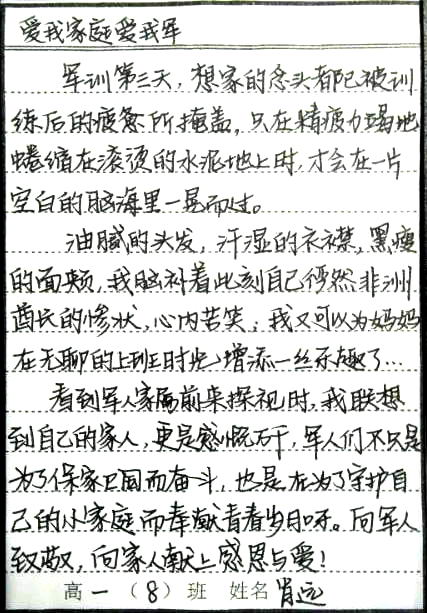 爱我家庭爱我军
军训第三天,想家的念头都已被训
练后的疲惫所掩盖,只在精疲力竭地
蜷缩在滚烫的水泥地上时,才会在一片
空白的脑海里一晃而过。
油腻的头发,汗湿的衣襟,黑瘦
的面颊,我脑补着此刻自己俨然非洲
酋长的惨状,心内苦笑,我又可以为妈妈
在无聊的上班时光增添一丝乐趣了…
看到军人家属前来探视时,我联想
到自己的家人,更是感慨万千,军人们不只是
为了保家卫国而奋斗,也是在为了守护自
己的小家庭而奉献青春岁月呀。向军人
致敬,向家人献上感恩与爱!
高一(8)班 姓名 肖远